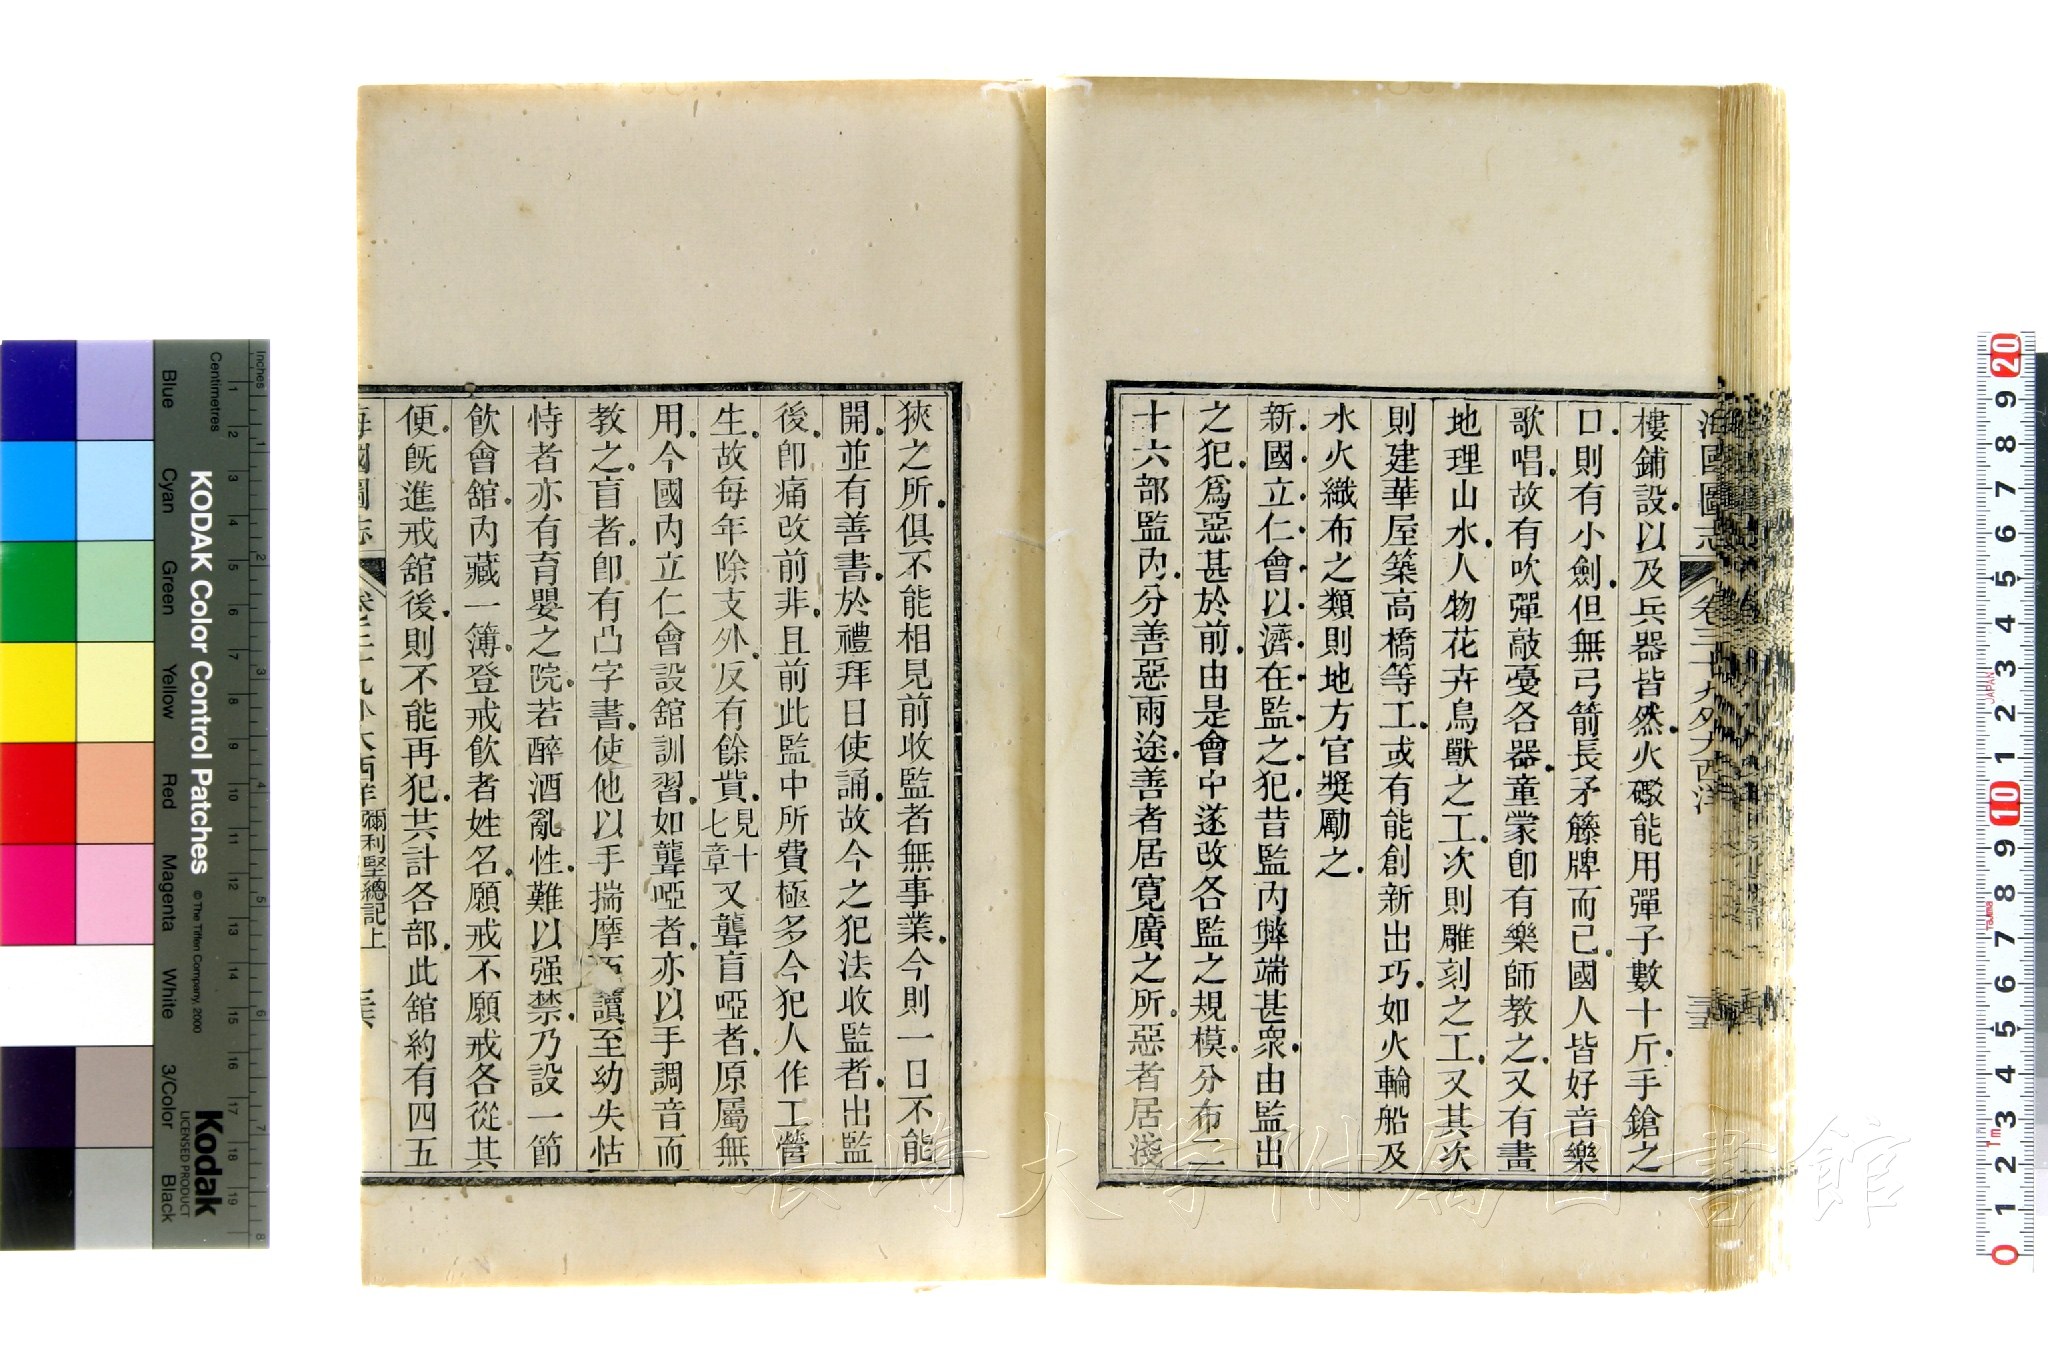 海國圖志 卷三十九外大西洋
樓鋪設以及兵器皆然火礮能用彈子數十斤手鎗之
口則有小劍但無弓箭長矛籐牌而已國人皆好音樂
歌唱故有吹彈敲戞各器童蒙卽有樂師教之又有畫
地理山水人物花卉鳥獸之工次則雕刻之工又其次
則建華屋築高橋等工或有能創新出巧如火輪船及
水火織布之類則地方官獎勵之
新國立仁會以濟在監之犯昔監內弊端甚衆由監出
之犯爲惡甚於前由是會中遂改各監之規模分布二
十六部監內分善惡兩途善者居寬廣之所惡者居淺
狹之所俱不能相見前收監者無事業今則一日不能
開並有善書於禮拜日使誦故今之犯法收監者出監
後卽痛改前非且前此監中所費極多今犯人作工營
生故每年除支外反有餘貲見十七章又聾盲啞者原屬無
用今國內立仁會設舘訓習如聾啞者亦以手調音而
教之盲者卽有凸字書使他以手揣摩而讀至幼失怙
恃者亦有育嬰之院若醉酒亂性難以强禁乃設一節
飲會舘內藏一簿登戒飲者姓名願戒不願戒各從其
便旣進戒舘後則不能再犯共計各部此舘約有四五
海國圖志 卷三十九外大西洋 彌利堅總記上
KODAK Color Control Patches
© The Tiffen Company, 2000
Kodak
LICENSED PRODUCT
Inches
Centimetres
Blue
Cyan
Green
Yellow
Red
Magenta
White
3/Color
Black
長崎大学附属図書館